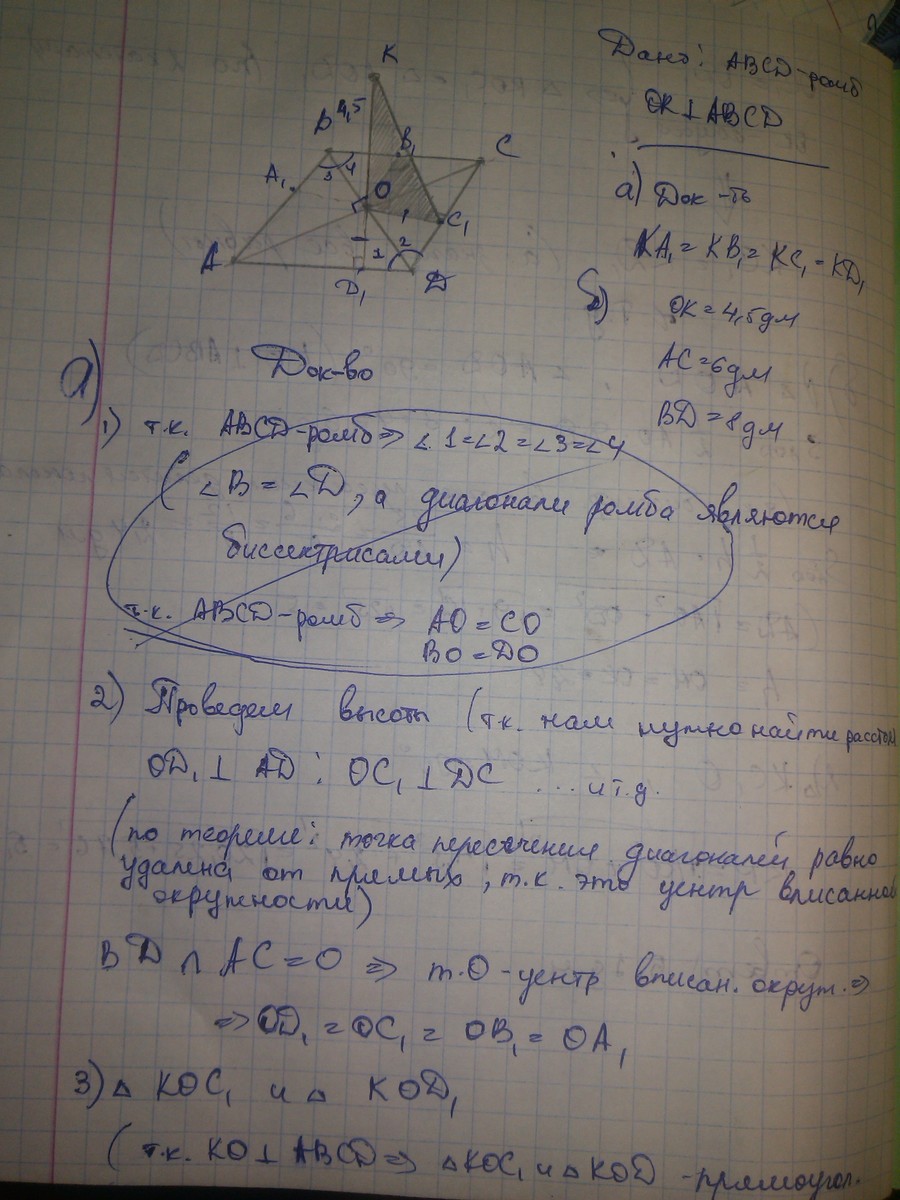 K
B 4,5
B₁
C
A₁
3 4
O
1
C₁
A
1 2
D₁
D
Дано: ABCD-ромб
OK⊥ABCD
а) Док-ть
KA₁=KB₁=KC₁=KD₁
б) OK=4,5дм
AC=6дм
BD=8дм
а) Док-во
1) т.к. ABCD-ромб⇒∠1=∠2=∠3=∠4
(∠B=∠D, а диагонали ромба являются
биссектрисами)
т.к. ABCD-ромб⇒ AO=CO
BO=DO
2) Проведем высоты (т.к. нам нужно найти расстоян
OD₁⊥AD; OC₁⊥DC ... и т.д.
(по теореме: точка пересечения диагоналей равно
удалена от прямых; т.к. это центр вписанной
окружности)
BD∩AC=O ⇒ т.O-центр вписан. окруж.⇒
⇒OD₁=OC₁=OB₁=OA₁
3)△ KOC₁ и △ KOD₁
(т.к. KO⊥ABCD⇒ △KOC₁ и △KOD-прямоугол.